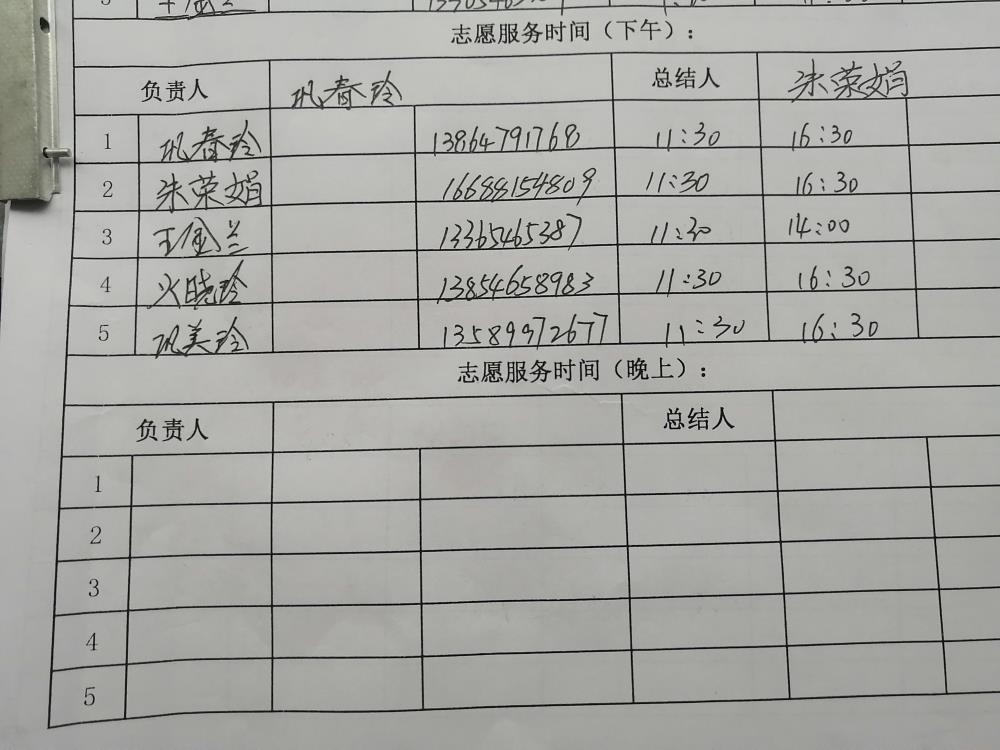 志愿服务时间（下午）：
负责人 巩春玲 总结人 朱荣娟
1 巩春玲 13864791768 11:30 16:30
2 朱荣娟 16688154809 11:30 16:30
3 王金兰 13365465387 11:30 14:00
4 火晓玲 13854658983 11:30 16:30
5 巩美玲 13589972677 11:30 16:30
志愿服务时间（晚上）：
负责人 总结人
1
2
3
4
5